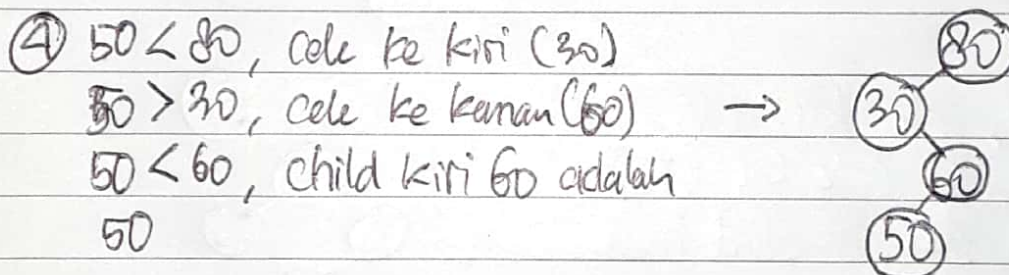 ④ 50 < 80, cek ke kiri (30)
50 > 30, cek ke kanan (60) →
50 < 60, child kiri 60 adalah
50
80
30
60
50